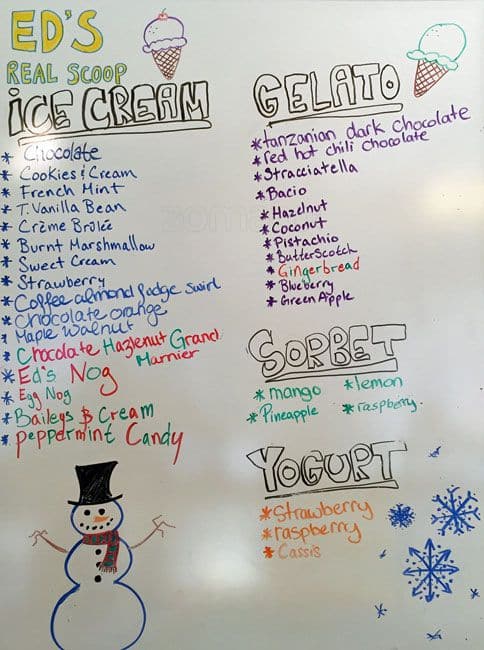 ED'S
REAL SCOOP
iCE CREAM
* Chocolate
* Cookies & Cream
* French Mint
* T. Vanilla Bean
* Crème Brûlée
* Burnt Marshmallow
* Sweet Cream
* Strawberry
* Coffee almond fudge swirl
* Chocolate orange
* Maple Walnut
* Chocolate Hazlenut Grand
Marnier
* Ed's Nog
* Egg Nog
* Baileys & Cream
* peppermint Candy
GELATO
* tanzanian dark chocolate
* red hot chili chocolate
* Stracciatella
* Bacio
* Hazelnut
* Coconut
* Pistachio
* ButterScotch
* Gingerbread
* Blueberry
* Green Apple
SORBET
* mango * lemon
* Pineapple * raspberry.
YOGURT
* Strawberry
* raspberry
* Cassis